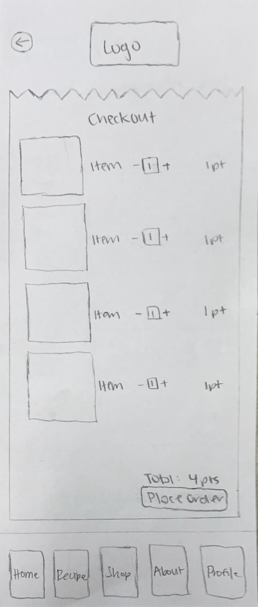 Logo
Checkout
Item - 1 + 1pt
Item - 1 + 1pt
Item - 1 + 1pt
Item - 1 + 1pt
Total: 4pts
Place order
Home Recipe Shop About Profile